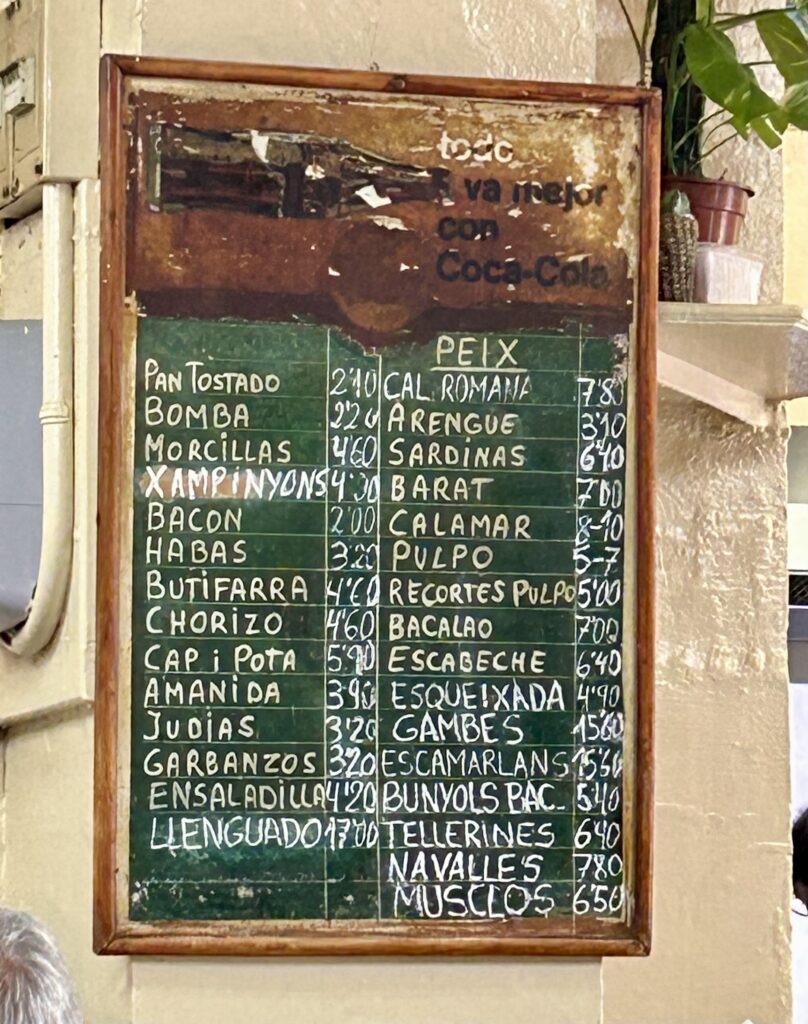 todo
va mejor
con
Coca-Cola
PAN TOSTADO 2'10
BOMBA 2'20
MORCILLAS 4'60
XAMPINYONS 4'30
BACON 2'00
HABAS 3'20
BUTIFARRA 4'60
CHORIZO 4'60
CAP i POTA 5'90
AMANIDA 3'90
JUDIAS 3'20
GARBANZOS 3'20
ENSALADILLA 4'20
LLENGUADO 17'00
PEIX
CAL. ROMANA 7'80
ARENGUE 3'10
SARDINAS 6'40
BARAT 7'00
CALAMAR 8-10
PULPO 5-7
RECORTES PULPO 5'00
BACALAO 7'00
ESCABECHE 6'40
ESQUEIXADA 4'90
GAMBES 15'60
ESCAMARLANS 15'60
BUNYOLS BAC. 5'40
TELLERINES 6'40
NAVALLES 7'80
MUSCLOS 6'50